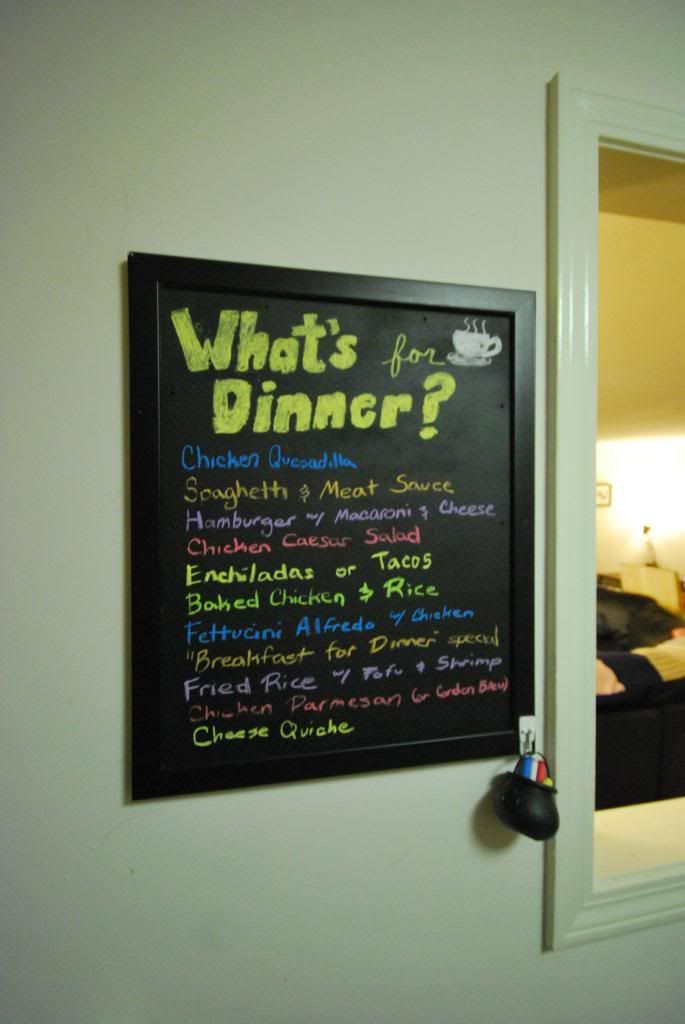 What's for
Dinner?
Chicken Quesadilla
Spaghetti & Meat Sauce
Hamburger w/ Macaroni & Cheese
Chicken Caesar Salad
Enchiladas or Tacos
Baked Chicken & Rice
Fettucini Alfredo w/ Chicken
"Breakfast for Dinner" special
Fried Rice w/ Tofu & Shrimp
Chicken Parmesan (or Cordon Bleu)
Cheese Quiche